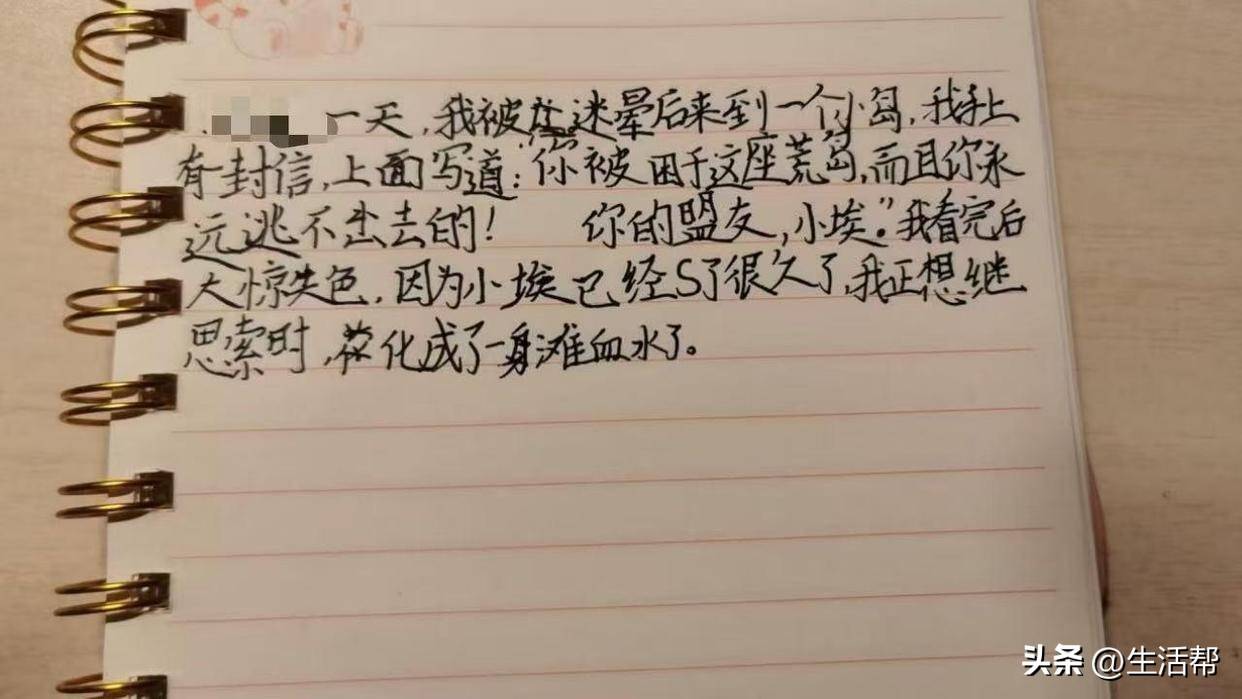 一天,我被迷晕后来到一个小岛,我手上
有封信,上面写道:“你被困于这座荒岛,而且你永
远逃不出去的! 你的盟友,小埃”。我看完后
大惊失色,因为小埃已经S了很久了,我正想继
思索时,化成了一身滩血水了。
头条 @生活帮